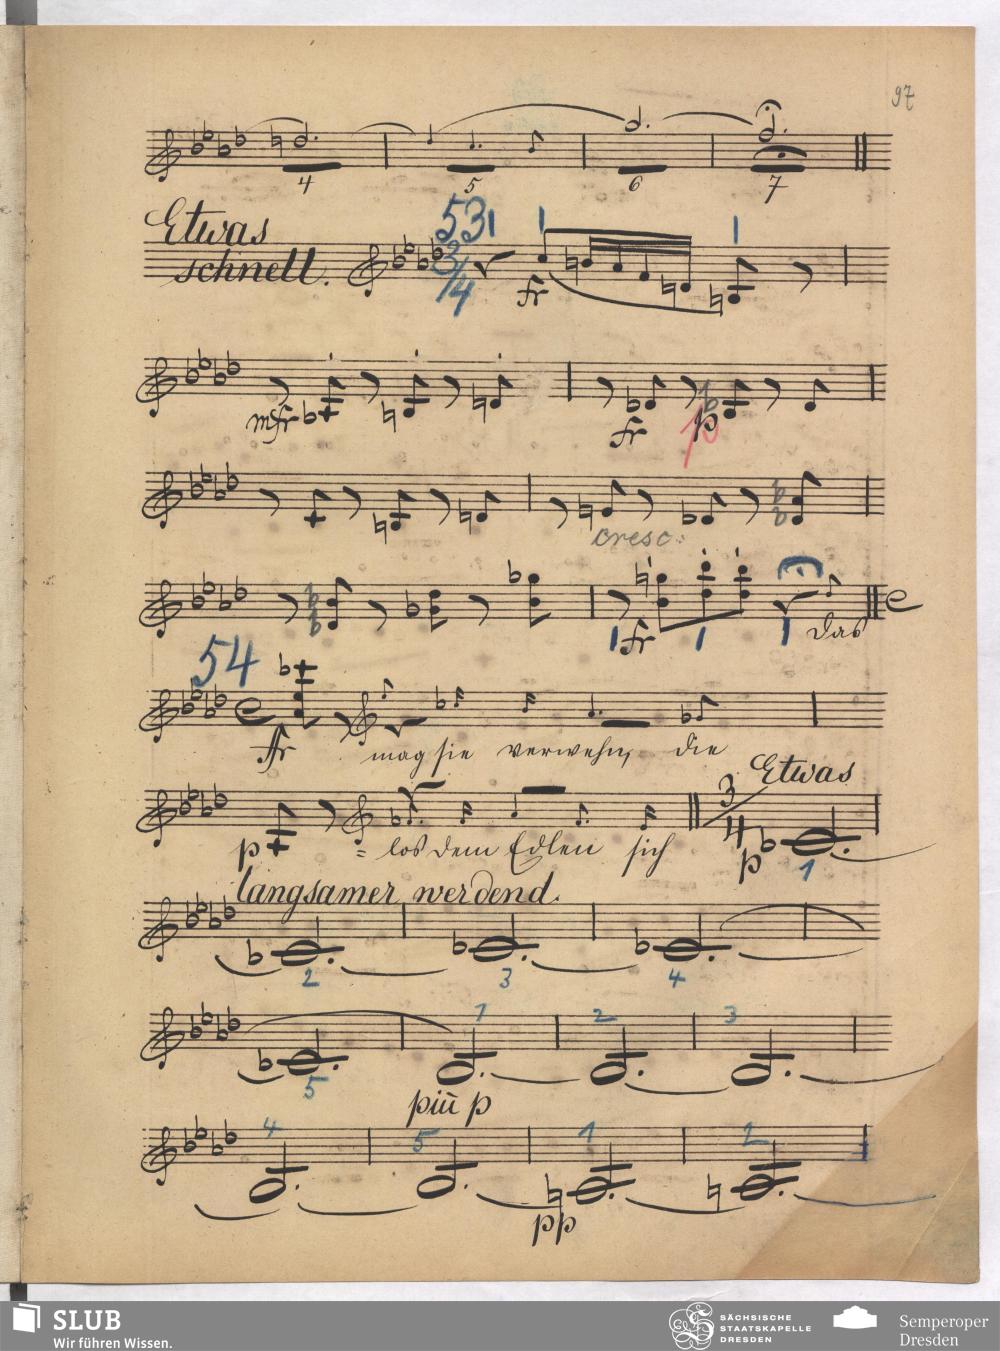 97
4 5 6 7
Etwas
schnell.
531 1 1
3/4
fr
mfr fr p
cresc:
1 fr 1 1 das
54
ffr mag sie verwehn, die
Etwas
p = los dem Edlen sich 3/4 p 1
langsamer werdend.
2 3 4
5 1 2 3
più p
4 5 1 2
pp
SLUB
Wir führen Wissen.
SÄCHSISCHE
STAATSKAPELLE
DRESDEN
Semperoper
Dresden